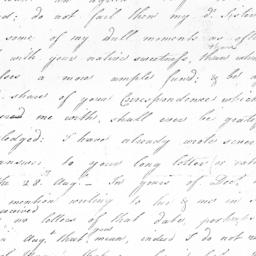 ed: do not fail then my dr Sister
some of my dull moments as often
with your native sweetness, than whom
does a more ample fund: & be a
share of your Correspondence which
me worth, shall ever be grate
ledged: I have already wrote seve
answer to your long letter or rather
the 28th Augt - In yours of Decr
mention writing to me & me in
received
no letters of that date, perhaps
in Augt that you mean, indeed I do not